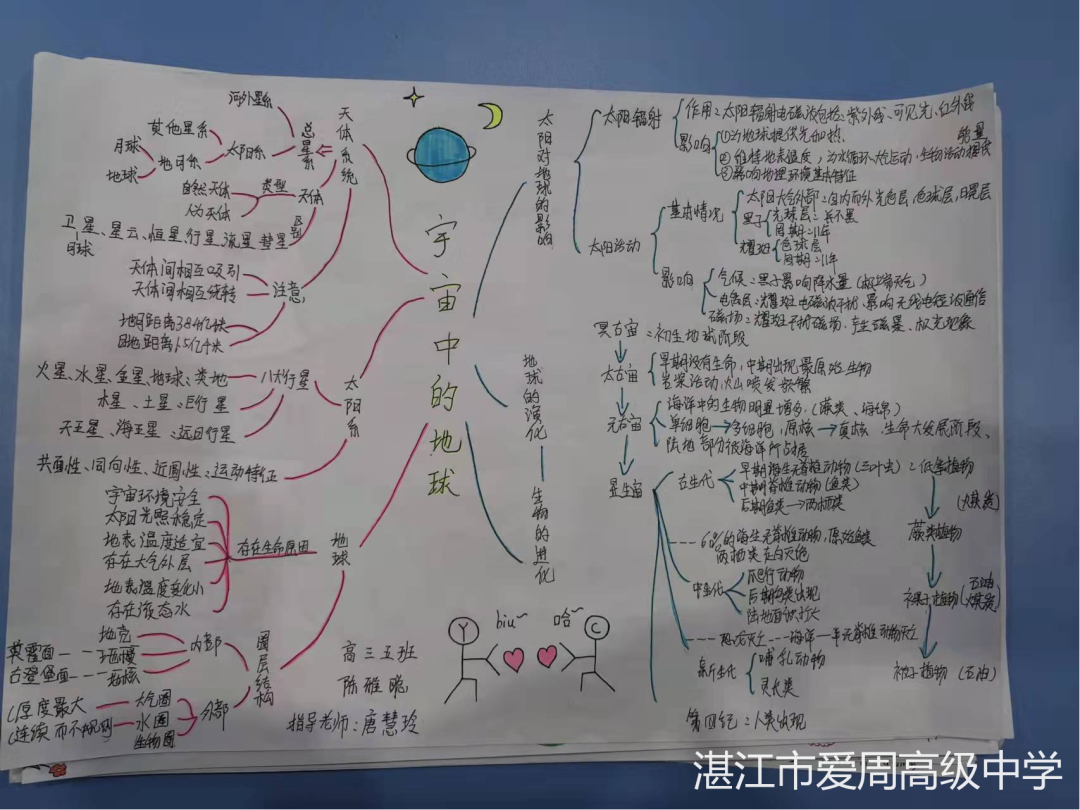 宇宙中的地球
天体系统
总星系
河外星系
其他星系
太阳系
月球
地月系
地球
自然天体
类型
天体
人为天体
卫星、星云、恒星、行星、流星、彗星
月球
天体间相互吸引
天体间相互绕转
注意
地月距离38.4亿千米
日地距离1.5亿千米
太阳系
八大行星
火星、水星、金星、地球:类地
木星、土星:巨行星
天王星、海王星:远日行星
共面性、同向性、近圆性:运动特征
地球
存在生命原因
宇宙环境安全
太阳光照稳定
地表温度适宜
存在大气外层
地表温度变化小
存在液态水
圈层结构
内部
地壳
莫霍面
地幔
古登堡面
地核
外部
(厚度最大
大气圈
(连续而不规则)
水圈
生物圈
太阳对地球的影响
太阳辐射
作用:太阳辐射电磁波包括:紫外线、可见光、红外线
影响
①为地球提供光和热
②维持地表温度,为水循环、大气运动、生物活动提供
能量
③影响地理环境基本特征
太阳活动
基本情况
太阳大气外部:由内而外光色层,色球层,日冕层
黑子
光球层:并不黑
周期:11年
耀斑
色球层
周期:11年
影响
气候:黑子影响降水量(极端天气)
电离层:耀斑电磁波干扰,影响无线电短波通信
磁场:耀斑干扰磁场,产生磁暴、极光现象
地球的演化
生物的进化
冥古宙:初生地球阶段
太古宙
早期没有生命,中期出现最原始生物
岩浆活动,火山喷发频繁
元古宙
海洋中的生物明显增多、(藻类、海绵)
单细胞→多细胞,原核→真核 生命大发展阶段、
陆地部分被海洋所占据
显生宙
古生代
早期海生无脊椎动物(三叶虫):低等植物
中期脊椎动物(鱼类)
后期鱼类→两栖类
(煤炭)
60%的海生无脊椎动物,原始鱼类
两栖类走向灭绝
蕨类植物
中生代
爬行动物
后期鸟类出现
陆地面积扩大
裸子植物(石油
煤炭)
恐龙灭亡---海洋一半无脊椎动物灭亡
新生代
哺乳动物
灵长类
被子植物(石油)
第四纪:人类出现
biu~
哈~
Y
C
高三五班
陈雅
指导老师:唐慧玲
湛江市爱周高级中学